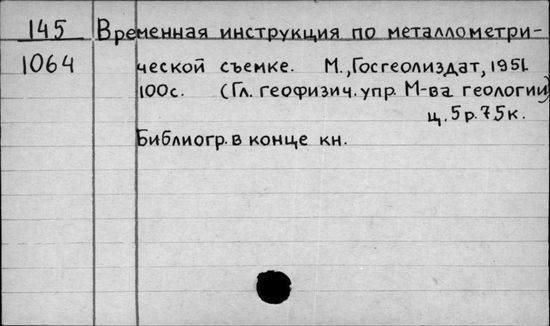 145 Временная инструкция по металлометри-
1064 ческой съемке. М., Госгеолиздат, 1951.
100с. (Гл. геофизич. упр. М-ва геологии)
ц. 5р. 75к.
Библиогр. в конце кн.